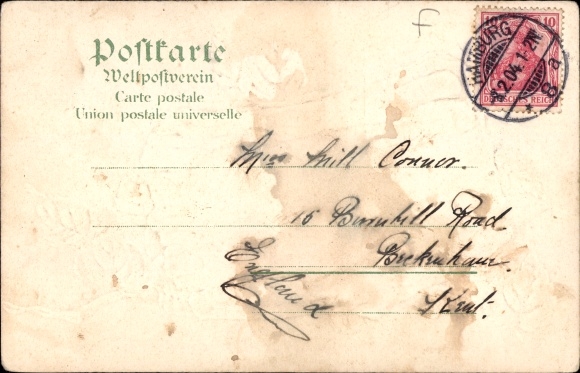 F
10
HAMBURG
2.04.1-2N
* 8 a
DEUTSCHES REICH
Postkarte
Weltpostverein
Carte postale
Union postale universelle
Miss Mill Connor.
15 Burnhill Road
Beckenham.
England
Kent.